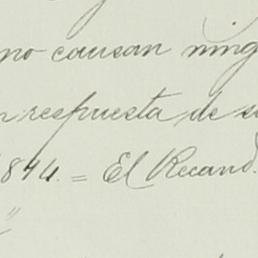 no causan ning
respuesta de su
1894. = El Recaud.
"